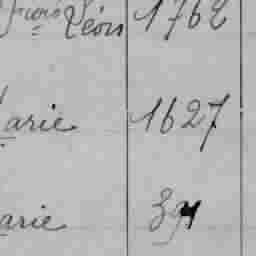 frois Léon 1762
arie 1627
arie 391